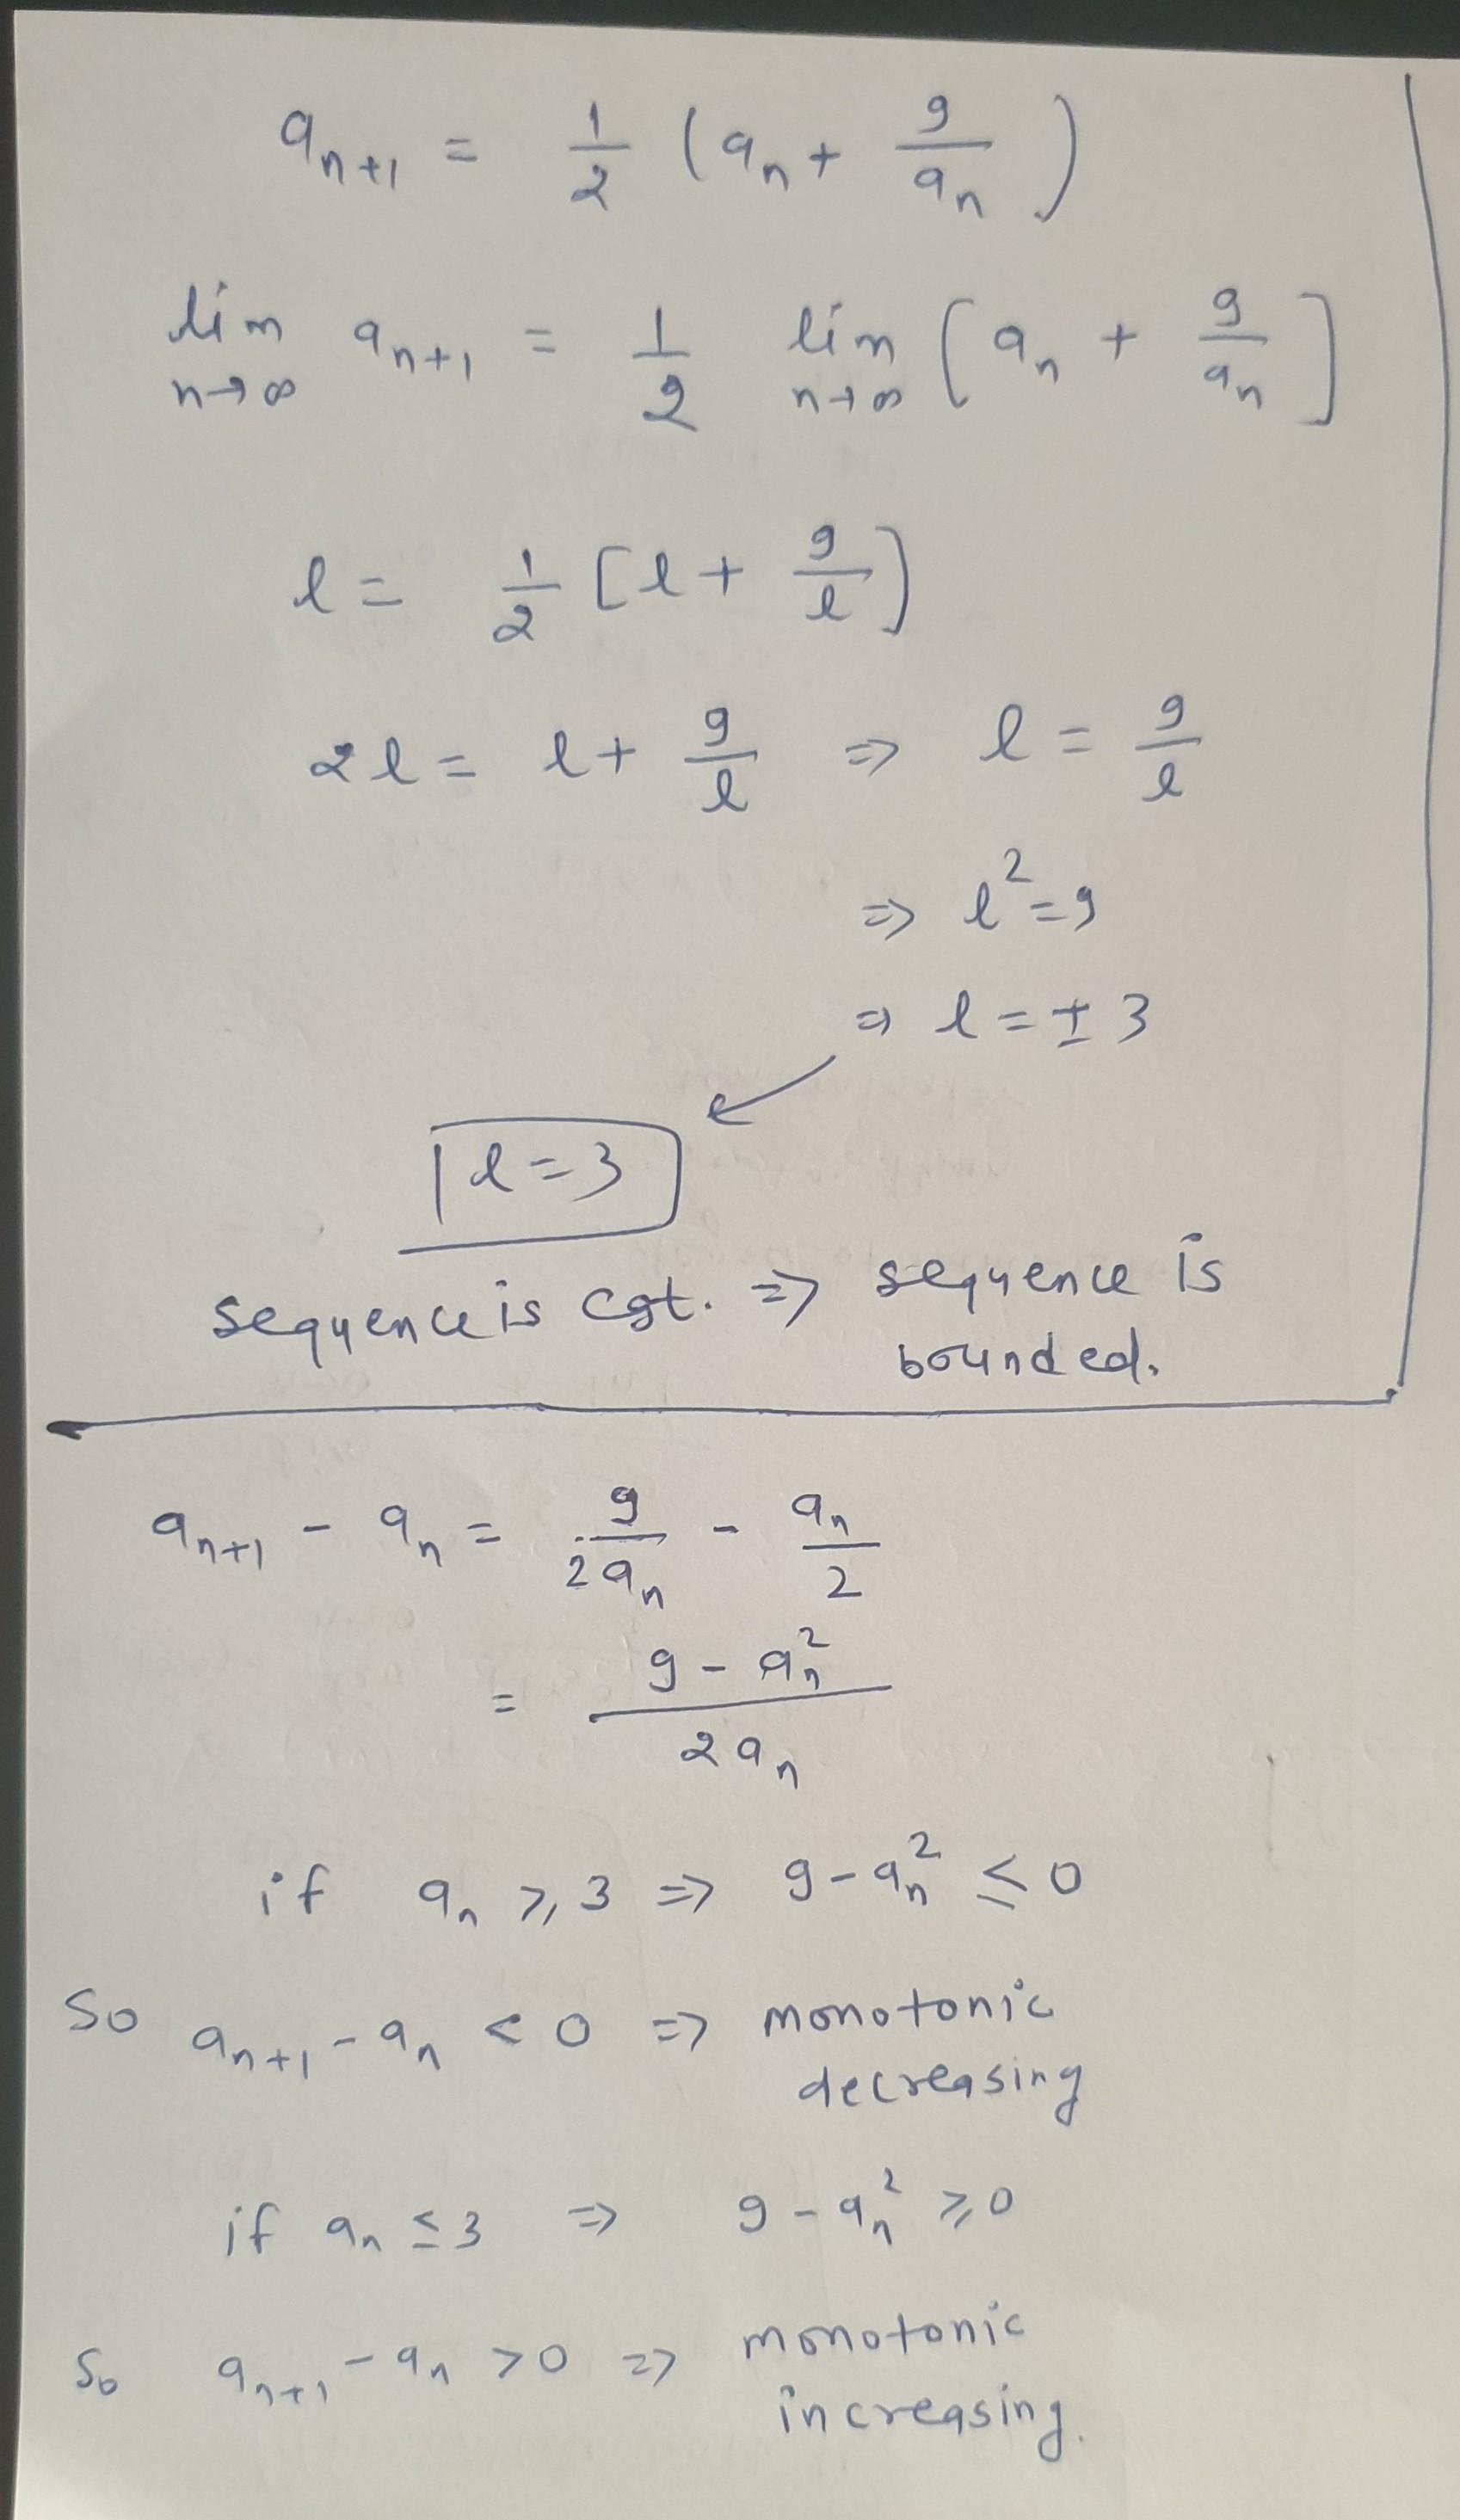 a_{n+1} = 1/2 (a_n + 9/a_n)
lim_{n→∞} a_{n+1} = 1/2 lim_{n→∞} [a_n + 9/a_n]
l = 1/2 [l + 9/l]
2l = l + 9/l ⇒ l = 9/l
⇒ l² = 9
⇒ l = ± 3
l = 3
sequence is cgt. ⇒ sequence is
bounded.
a_{n+1} - a_n = 9/2a_n - a_n/2
= (9 - a_n²)/2a_n
if a_n ≥ 3 ⇒ 9 - a_n² ≤ 0
So a_{n+1} - a_n < 0 ⇒ monotonic
decreasing
if a_n ≤ 3 ⇒ 9 - a_n² ≥ 0
So a_{n+1} - a_n > 0 ⇒ monotonic
increasing.